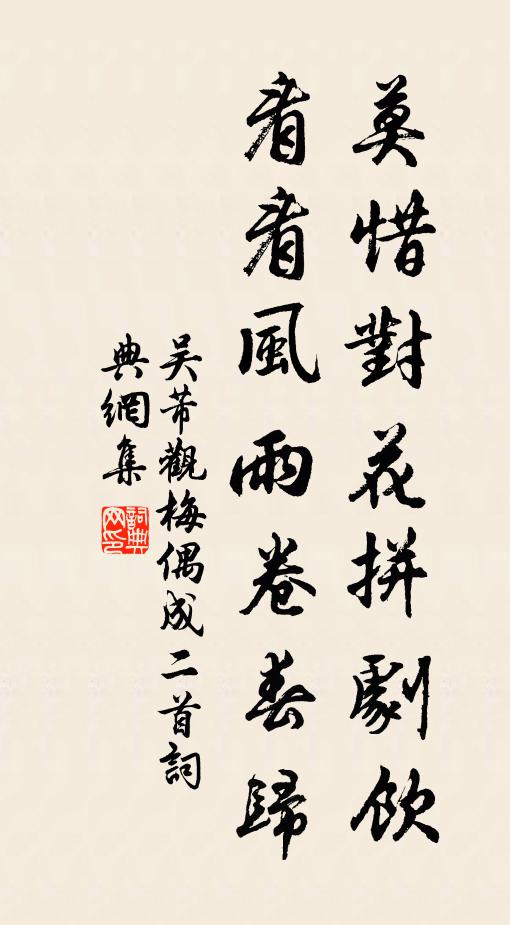 莫惜對花拼劇飲
看看風雨卷春歸
吴芾觀梅偶成二首詞
典網集
詞典网印